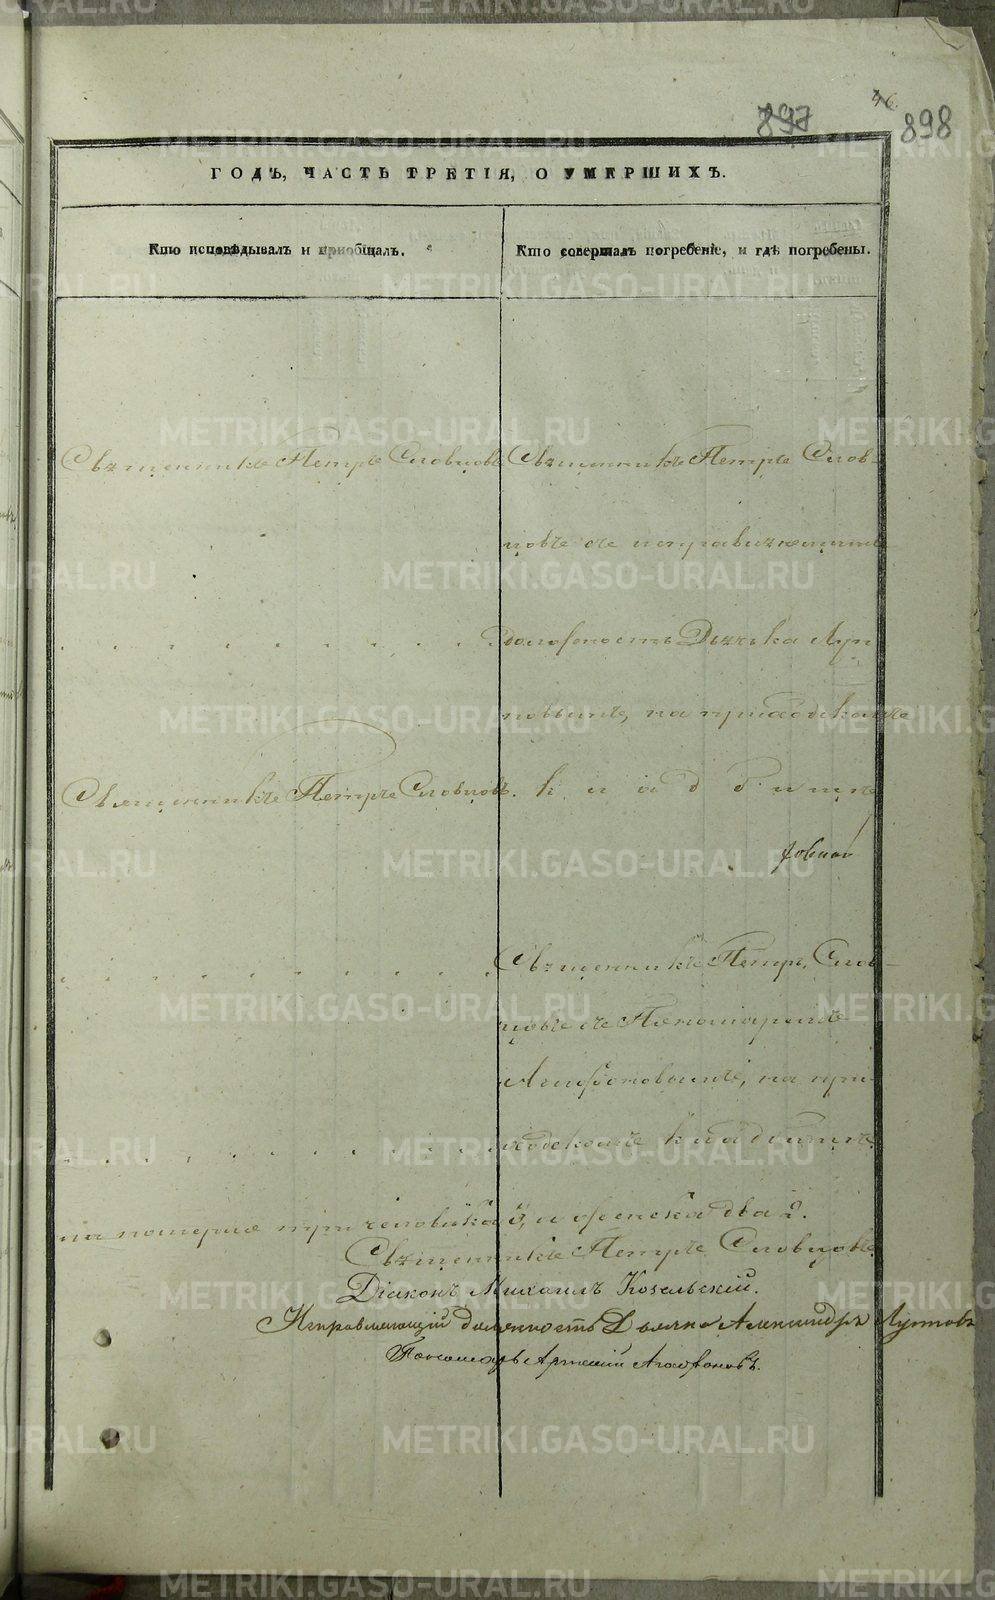 46
897
898
ГОДЪ, ЧАСТЬ ТРЕТІЯ, О УМЕРШИХЪ.
Кто исповѣдывалъ и приобщалъ.
Кто совершалъ погребеніе, и гдѣ погребены.
Священникъ Петръ Словцовъ
Священникъ Петръ Слов-
цовъ съ исправляющимъ
должность Дьячька Луп
повымъ, на приходскомъ
Священникъ Петръ Словцовъ.
кладбищѣ
Священникъ Петръ Слов-
цовъ съ Пономаремъ
Агафоновымъ, на при-
ходскомъ кладбищѣ.
человѣка 3, и женска два 2.
Священникъ Петръ Словцовъ
Діаконъ Михаилъ Козельскій.
Исправляющій должность Дьячка Александръ Лупповъ
Пономарь Арсеній Агафоновъ.
METRIKI.GASO-URAL.RU